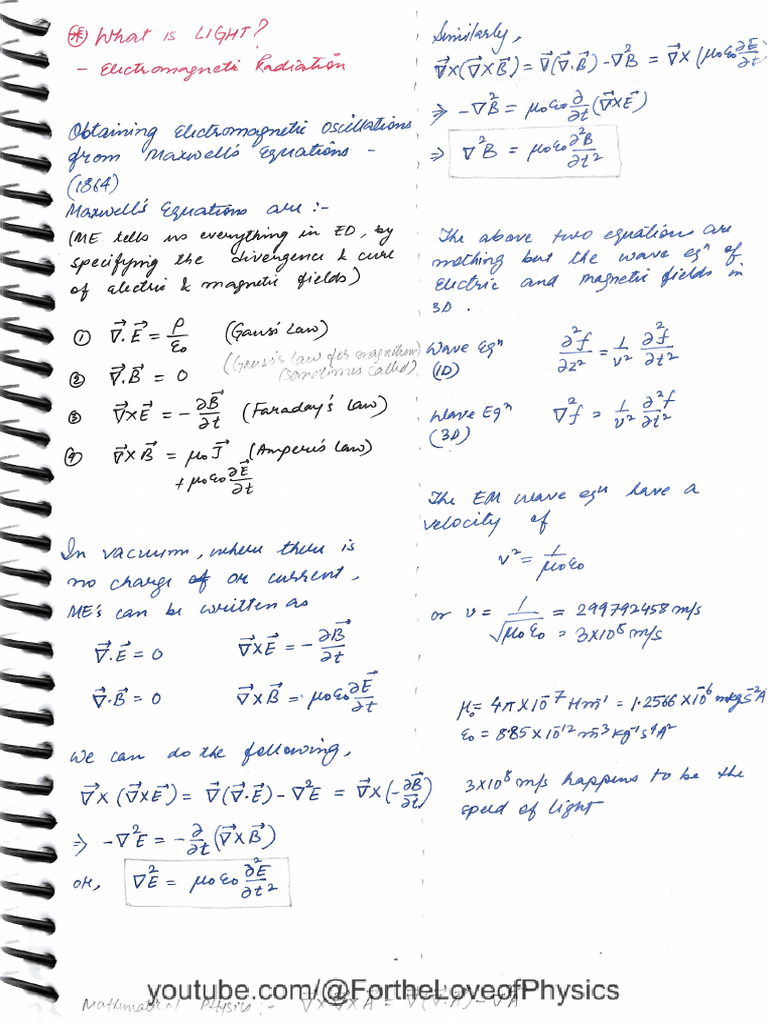 ⊛ What is LIGHT?
- Electromagnetic Radiation
Obtaining Electromagnetic Oscillations
from Maxwell's Equations -
(1864)
Maxwell's Equations are :-
(ME tells us everything in ED, by
specifying the divergence & curl
of electric & magnetic fields)
① ∇⃗.E⃗ = ρ/ε0 (Gauss' Law)
(Gauss's law for magnetism)
② ∇⃗.B⃗ = 0 (sometimes called)
③ ∇⃗×E⃗ = -∂B⃗/∂t (Faraday's Law)
④ ∇⃗×B⃗ = μ0J⃗ (Ampere's Law)
+ μ0ε0∂E⃗/∂t
In vacuum, where there is
no charge or current,
ME's can be written as
∇⃗.E⃗ = 0 ∇⃗×E⃗ = -∂B⃗/∂t
∇⃗.B⃗ = 0 ∇⃗×B⃗ = μ0ε0∂E⃗/∂t
We can do the following,
∇⃗×(∇⃗×E⃗) = ∇⃗(∇⃗.E⃗) - ∇²E = ∇⃗×(-∂B⃗/∂t)
⇒ -∇²E = -∂/∂t(∇⃗×B⃗)
or, ∇²E = μ0ε0∂²E/∂t²
Similarly,
∇⃗×(∇⃗×B⃗) = ∇⃗(∇⃗.B⃗) - ∇²B = ∇⃗×(μ0ε0∂E⃗/∂t
⇒ -∇²B = μ0ε0∂/∂t(∇⃗×E⃗)
⇒ ∇²B = μ0ε0∂²B/∂t²
The above two equations are
nothing but the wave eqⁿ of
Electric and Magnetic fields in
3D.
Wave Eqⁿ ∂²f/∂z² = 1/v² ∂²f/∂t²
(1D)
Wave Eqⁿ ∇²f = 1/v² ∂²f/∂t²
(3D)
The EM wave eqn have a
velocity of
v² = 1/μ0ε0
or v = 1/√μ0ε0 = 299792458 m/s
= 3×10⁸ m/s
μ0 = 4π×10⁻⁷ Hm⁻¹ = 1.2566×10⁻⁶ mkgs⁻²A
ε0 = 8.85×10⁻¹² m⁻³kg⁻¹s⁴A²
3×10⁸ m/s happens to be the
speed of light
Mathematical Physics :- ∇×∇×A = ∇(∇.A) - ∇²A
youtube.com/@FortheLoveofPhysics